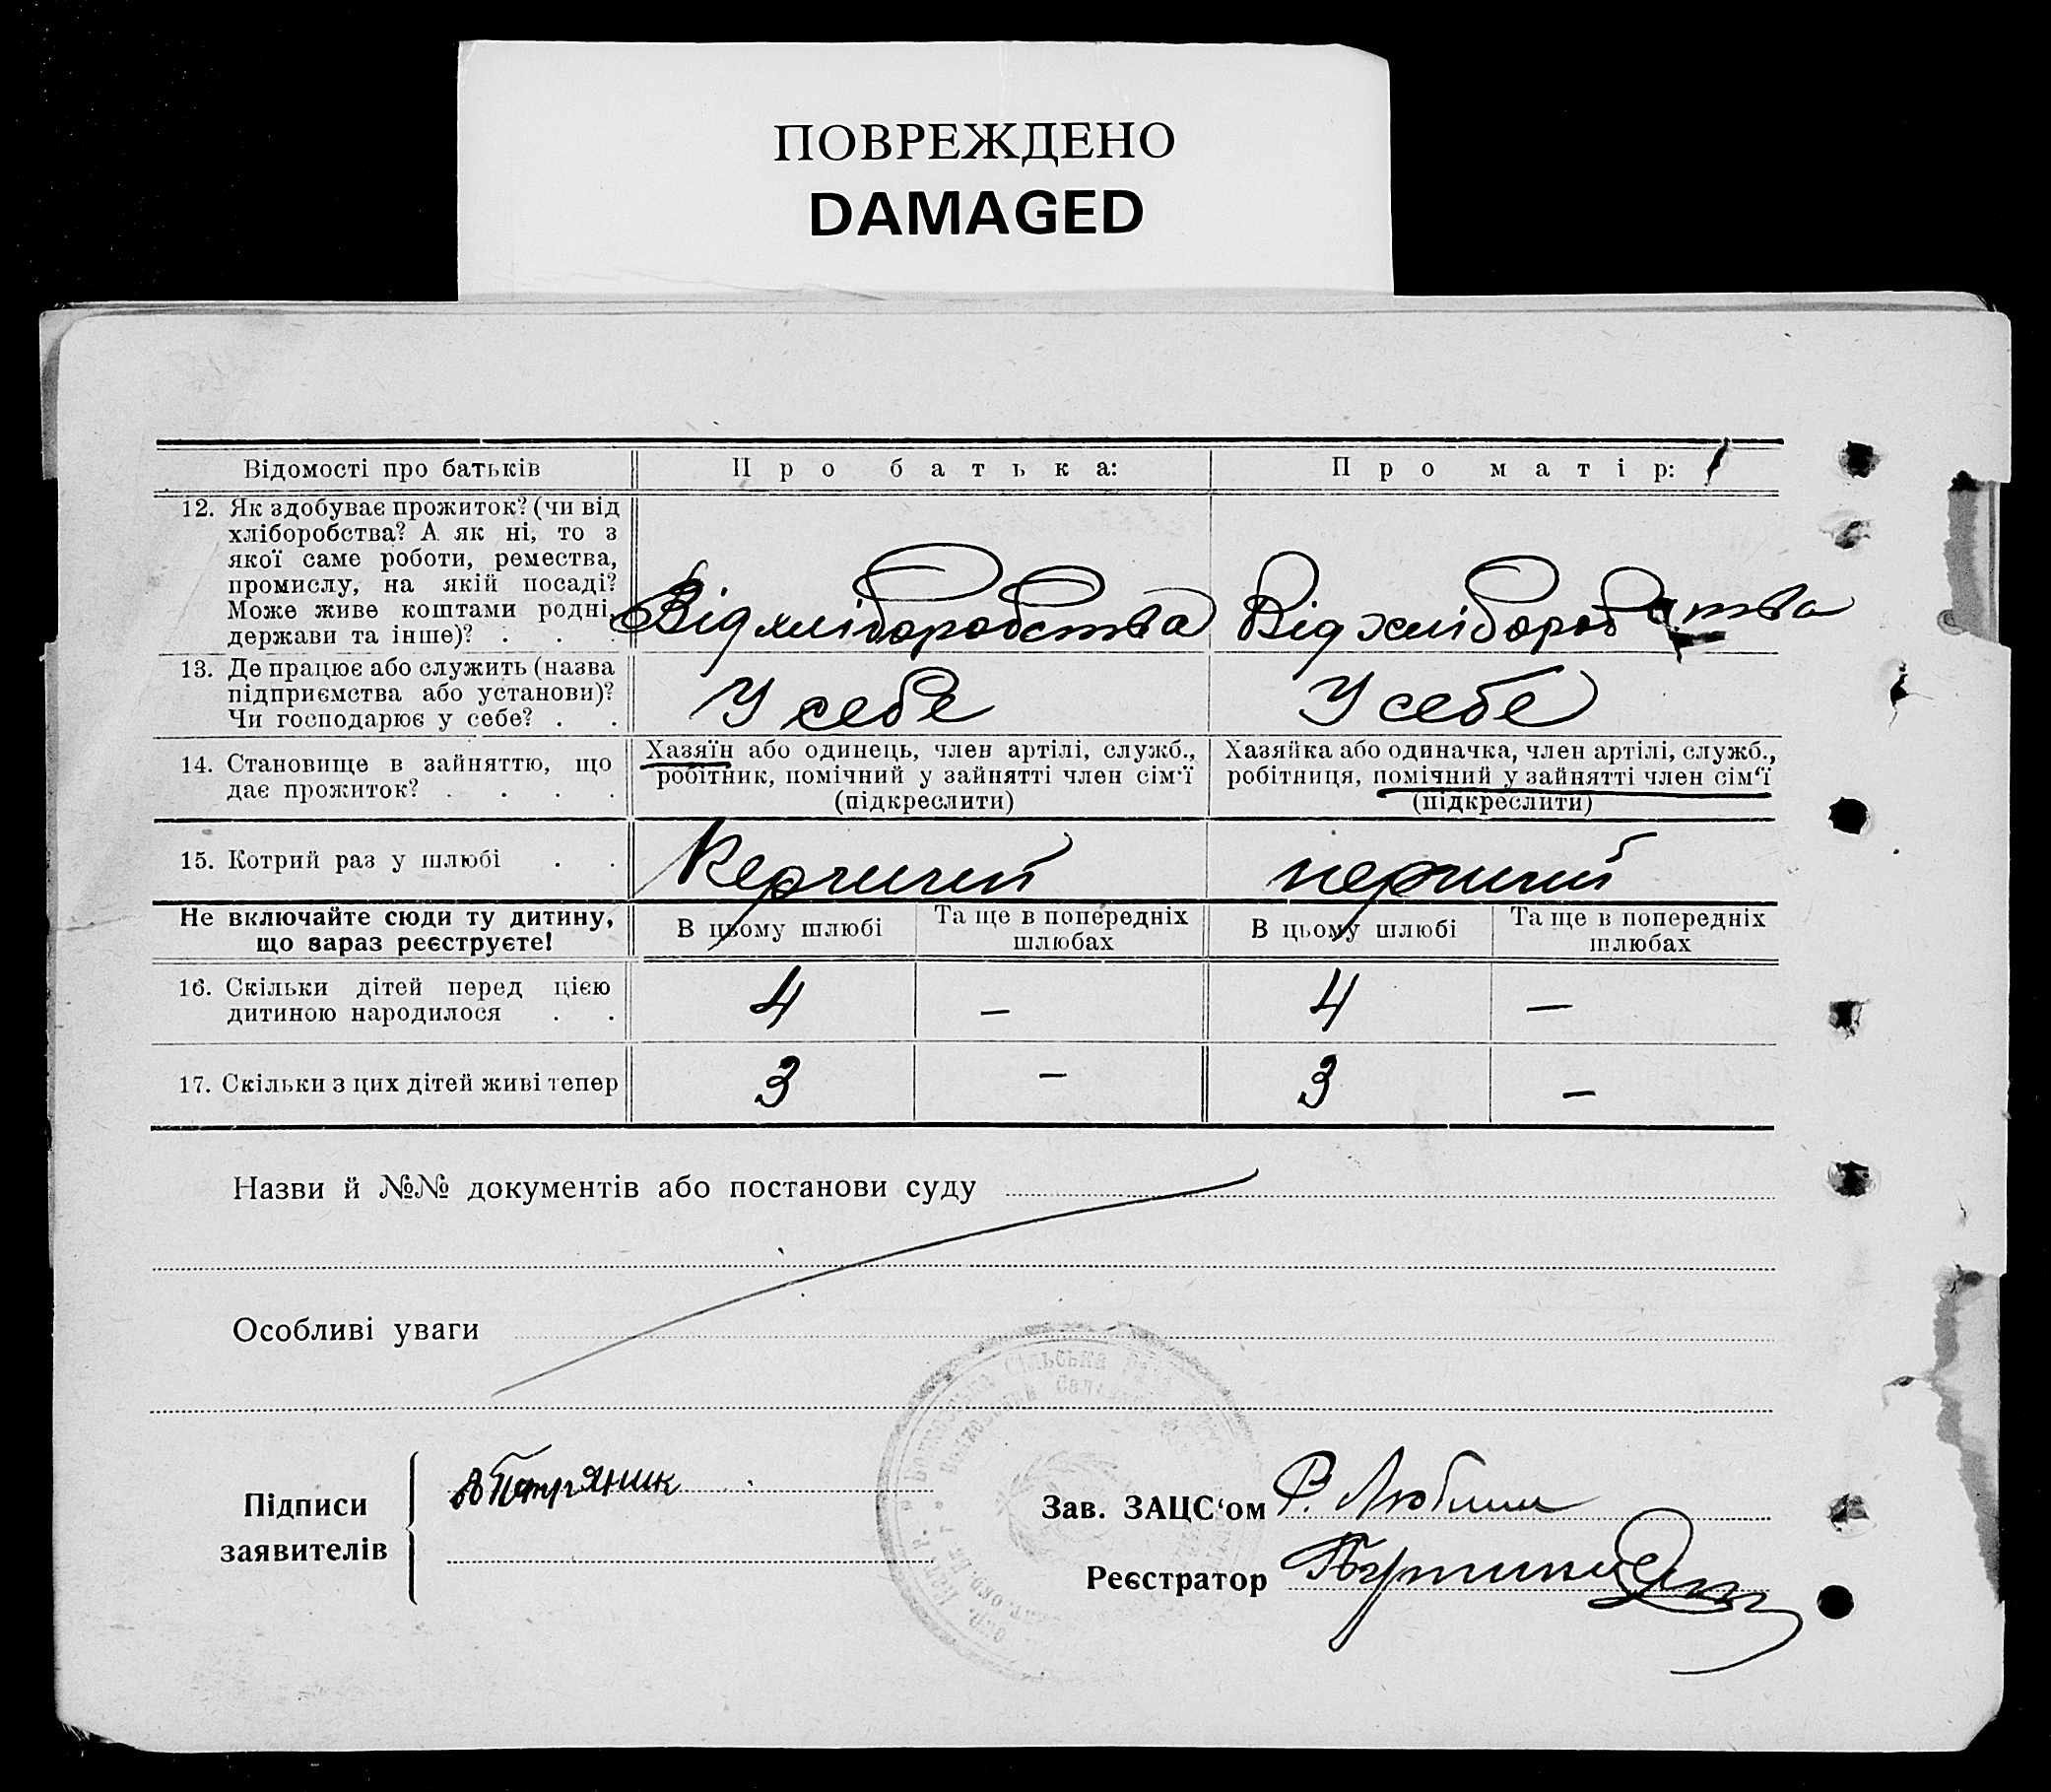 ПОВРЕЖДЕНО
DAMAGED
Відомості про батьків
Про батька:
Про матір:
12. Як здобуває прожиток? (чи від
хліборобства? А як ні, то з
якої саме роботи, ремества,
промислу, на якій посаді?
Може живе коштами родні,
держави та інше)? . . .
Від хліборобства
Від хліборобства
13. Де працює або служить (назва
підприємства або установи)?
Чи господарює у себе? . .
У себе
У себе
14. Становище в зайняттю, що
дає прожиток? . . . .
Хазяїн або одинець, член артілі, служб.,
робітник, помічний у зайнятті член сім'ї
(підкреслити)
Хазяйка або одиначка, член артілі, служб.,
робітниця, помічний у зайнятті член сім'ї
(підкреслити)
15. Котрий раз у шлюбі . .
Перший
перший
Не включайте сюди ту дитину,
що зараз реєструєте!
В цьому шлюбі
Та ще в попередніх
шлюбах
В цьому шлюбі
Та ще в попередніх
шлюбах
16. Скільки дітей перед цією
дитиною народилося . .
4
—
4
—
17. Скільки з цих дітей живі тепер
3
—
3
—
Назви й №№ документів або постанови суду
Особливі уваги
Підписи
заявителів
Зав. ЗАЦС'ом
Реєстратор
Сільська Рада